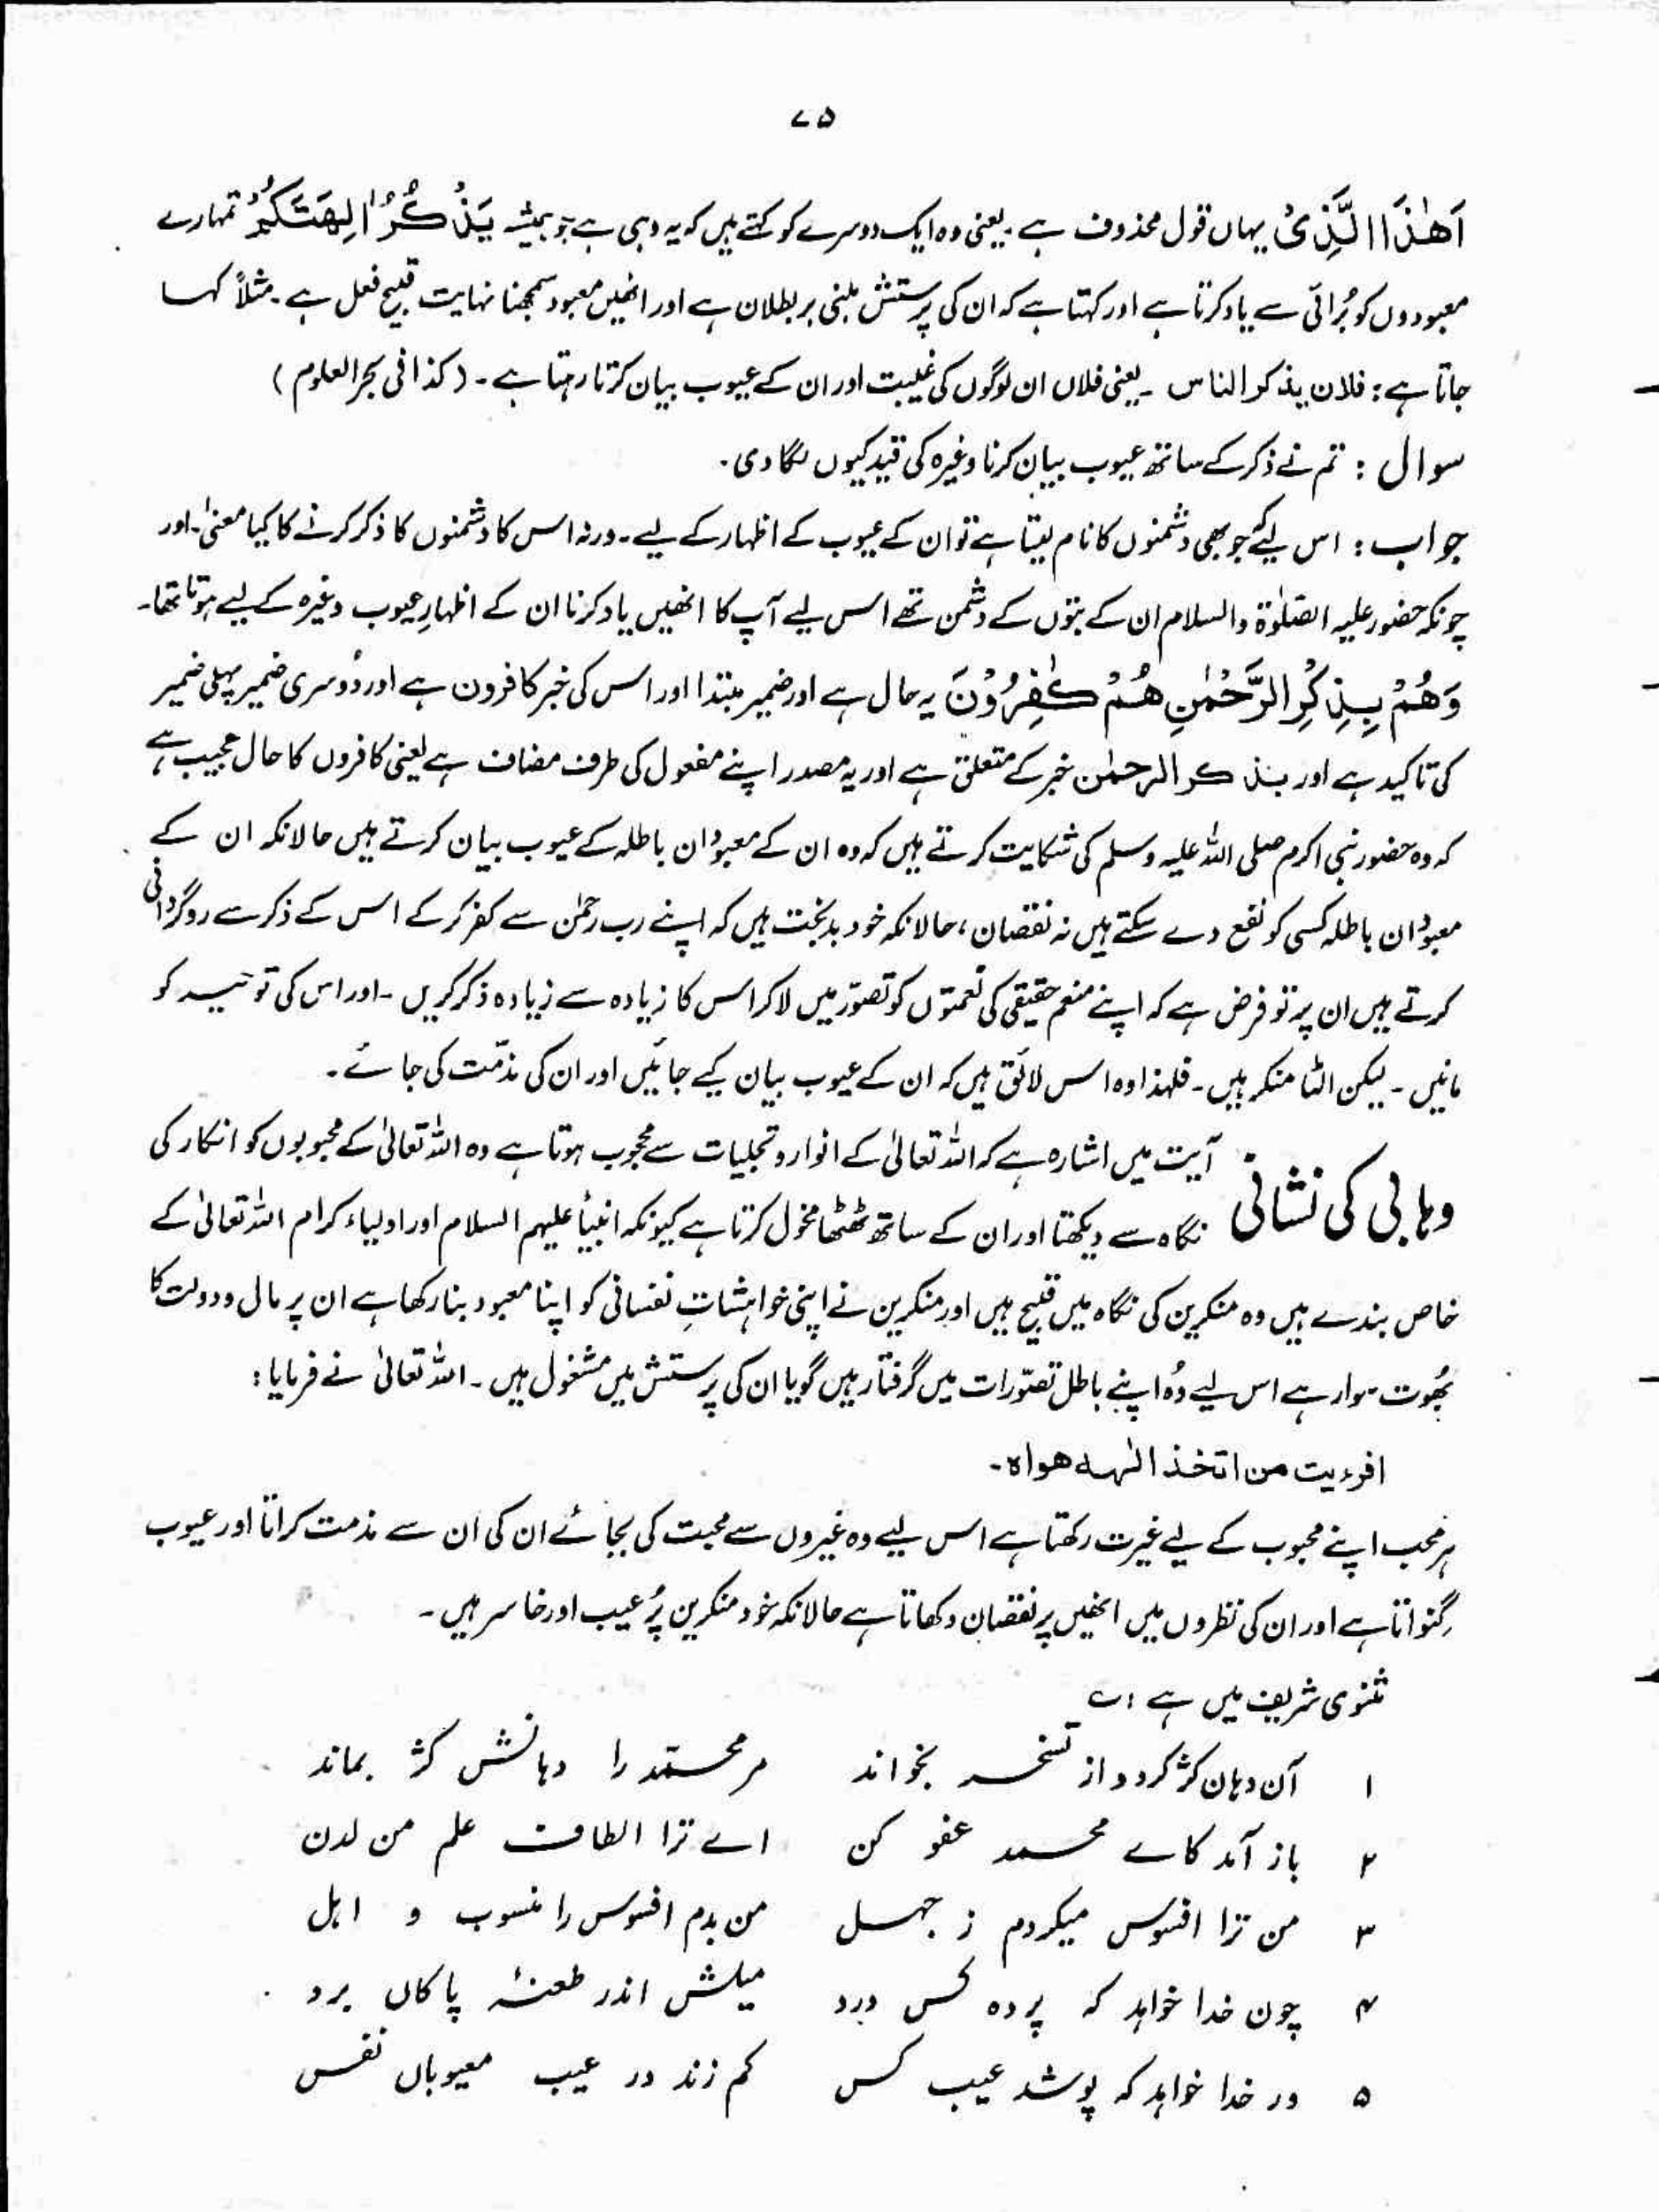 ۷۵
اَهٰذَا الَّذِیْ یہاں قول محذوف ہے ۔ یعنی وہ ایک دوسرے کو کہتے ہیں کہ یہ وہی ہے جو ہمیشہ یَذْكُرُ اٰلِهَتَكُمْ تمہارے
معبودوں کو بُرائی سے یاد کرتا ہے اور کہتا ہے کہ ان کی پرستش مبنی بر بطلان ہے اور انھیں معبود سمجھنا نہایت قبیح فعل ہے ۔ مثلاً کہا
جاتا ہے : فلان یذکر الناس ۔ یعنی فلاں ان لوگوں کی غیبت اور ان کے عیوب بیان کرتا رہتا ہے ۔ ( کذا فی بحر العلوم )
سوال : تم نے ذکر کے ساتھ عیوب بیان کرنا وغیرہ کی قید کیوں لگا دی ۔
جواب : اس لیے کہ جو بھی دشمنوں کا نام لیتا ہے تو ان کے عیوب کے اظہار کے لیے ۔ ورنہ اس کا دشمنوں کا ذکر کرنے کا کیا معنیٰ ۔ اور
چونکہ حضور علیہ الصّلوٰۃ والسلام ان کے بتوں کے دشمن تھے اس لیے آپ کا انھیں یاد کرنا ان کے اظہارِ عیوب وغیرہ کے لیے ہوتا تھا ۔
وَهُمْ بِذِكْرِ الرَّحْمٰنِ هُمْ كٰفِرُوْنَ یہ حال ہے اور ضمیر مبتدا اور اس کی خبر کافرون ہے اور دُوسری ضمیر پہلی ضمیر
کی تاکید ہے اور بذکر الرحمٰن خبر کے متعلق ہے اور یہ مصدر اپنے مفعول کی طرف مضاف ہے یعنی کافروں کا حال عجیب ہے
کہ وہ حضور نبی اکرم صلی اللہ علیہ وسلم کی شکایت کرتے ہیں کہ وہ ان کے معبودان باطلہ کے عیوب بیان کرتے ہیں حالانکہ ان کے
معبودان باطلہ کسی کو نفع دے سکتے ہیں نہ نقصان ، حالانکہ خود بدبخت ہیں کہ اپنے رب رحمٰن سے کفر کر کے اس کے ذکر سے روگردانی
کرتے ہیں ان پر تو فرض ہے کہ اپنے منعم حقیقی کی نعمتوں کو تصوّر میں لا کر اس کا زیادہ سے زیادہ ذکر کریں ۔ اور اس کی توحید کو
مانیں ۔ لیکن الٹا منکر ہیں ۔ فلہذا وہ اس لائق ہیں کہ ان کے عیوب بیان کیے جائیں اور ان کی مذمّت کی جائے ۔
وہابی کی نشانی
آیت میں اشارہ ہے کہ اللہ تعالیٰ کے انوار و تجلیات سے محجوب ہوتا ہے وہ اللہ تعالیٰ کے محبوبوں کو انکار کی
نگاہ سے دیکھتا اور ان کے ساتھ ٹھٹھا مخول کرتا ہے کیونکہ انبیأ علیہم السلام اور اولیاء کرام اللہ تعالیٰ کے
خاص بندے ہیں وہ منکرین کی نگاہ میں قبیح ہیں اور منکرین نے اپنی خواہشاتِ نفسانی کو اپنا معبود بنا رکھا ہے ان پر مال و دولت کا
بُھوت سوار ہے اس لیے وُہ اپنے باطل تصوّرات میں گرفتار ہیں گویا ان کی پرستش میں مشغول ہیں ۔ اللہ تعالیٰ نے فرمایا :
افرءیت من اتخذ الٰہہ ھواہ ۔
ہر محب اپنے محبوب کے لیے غیرت رکھتا ہے اس لیے وہ غیروں سے محبت کی بجائے ان کی ان سے مذمت کراتا اور عیوب
گِنواتا ہے اور ان کی نظروں میں انھیں پر نقصان دکھاتا ہے حالانکہ خود منکرین پُر عیب اور خاسر ہیں ۔
مثنوی شریف میں ہے : ؎
۱ آن دہان کژ کرد و از تسخر بخواند مر محمّد را دہانش کژ بماند
۲ باز آمد کاے محمد عفو کن اے ترا الطاف علم من لدن
۳ من ترا افسوس میکردم ز جہل من بدم افسوس را منسوب و اہل
۴ چون خدا خواہد کہ پردہ کس درد میلش اندر طعنۂ پاکاں برد
۵ ور خدا خواہد کہ پوشد عیب کس کم زند در عیب معیوباں نفس